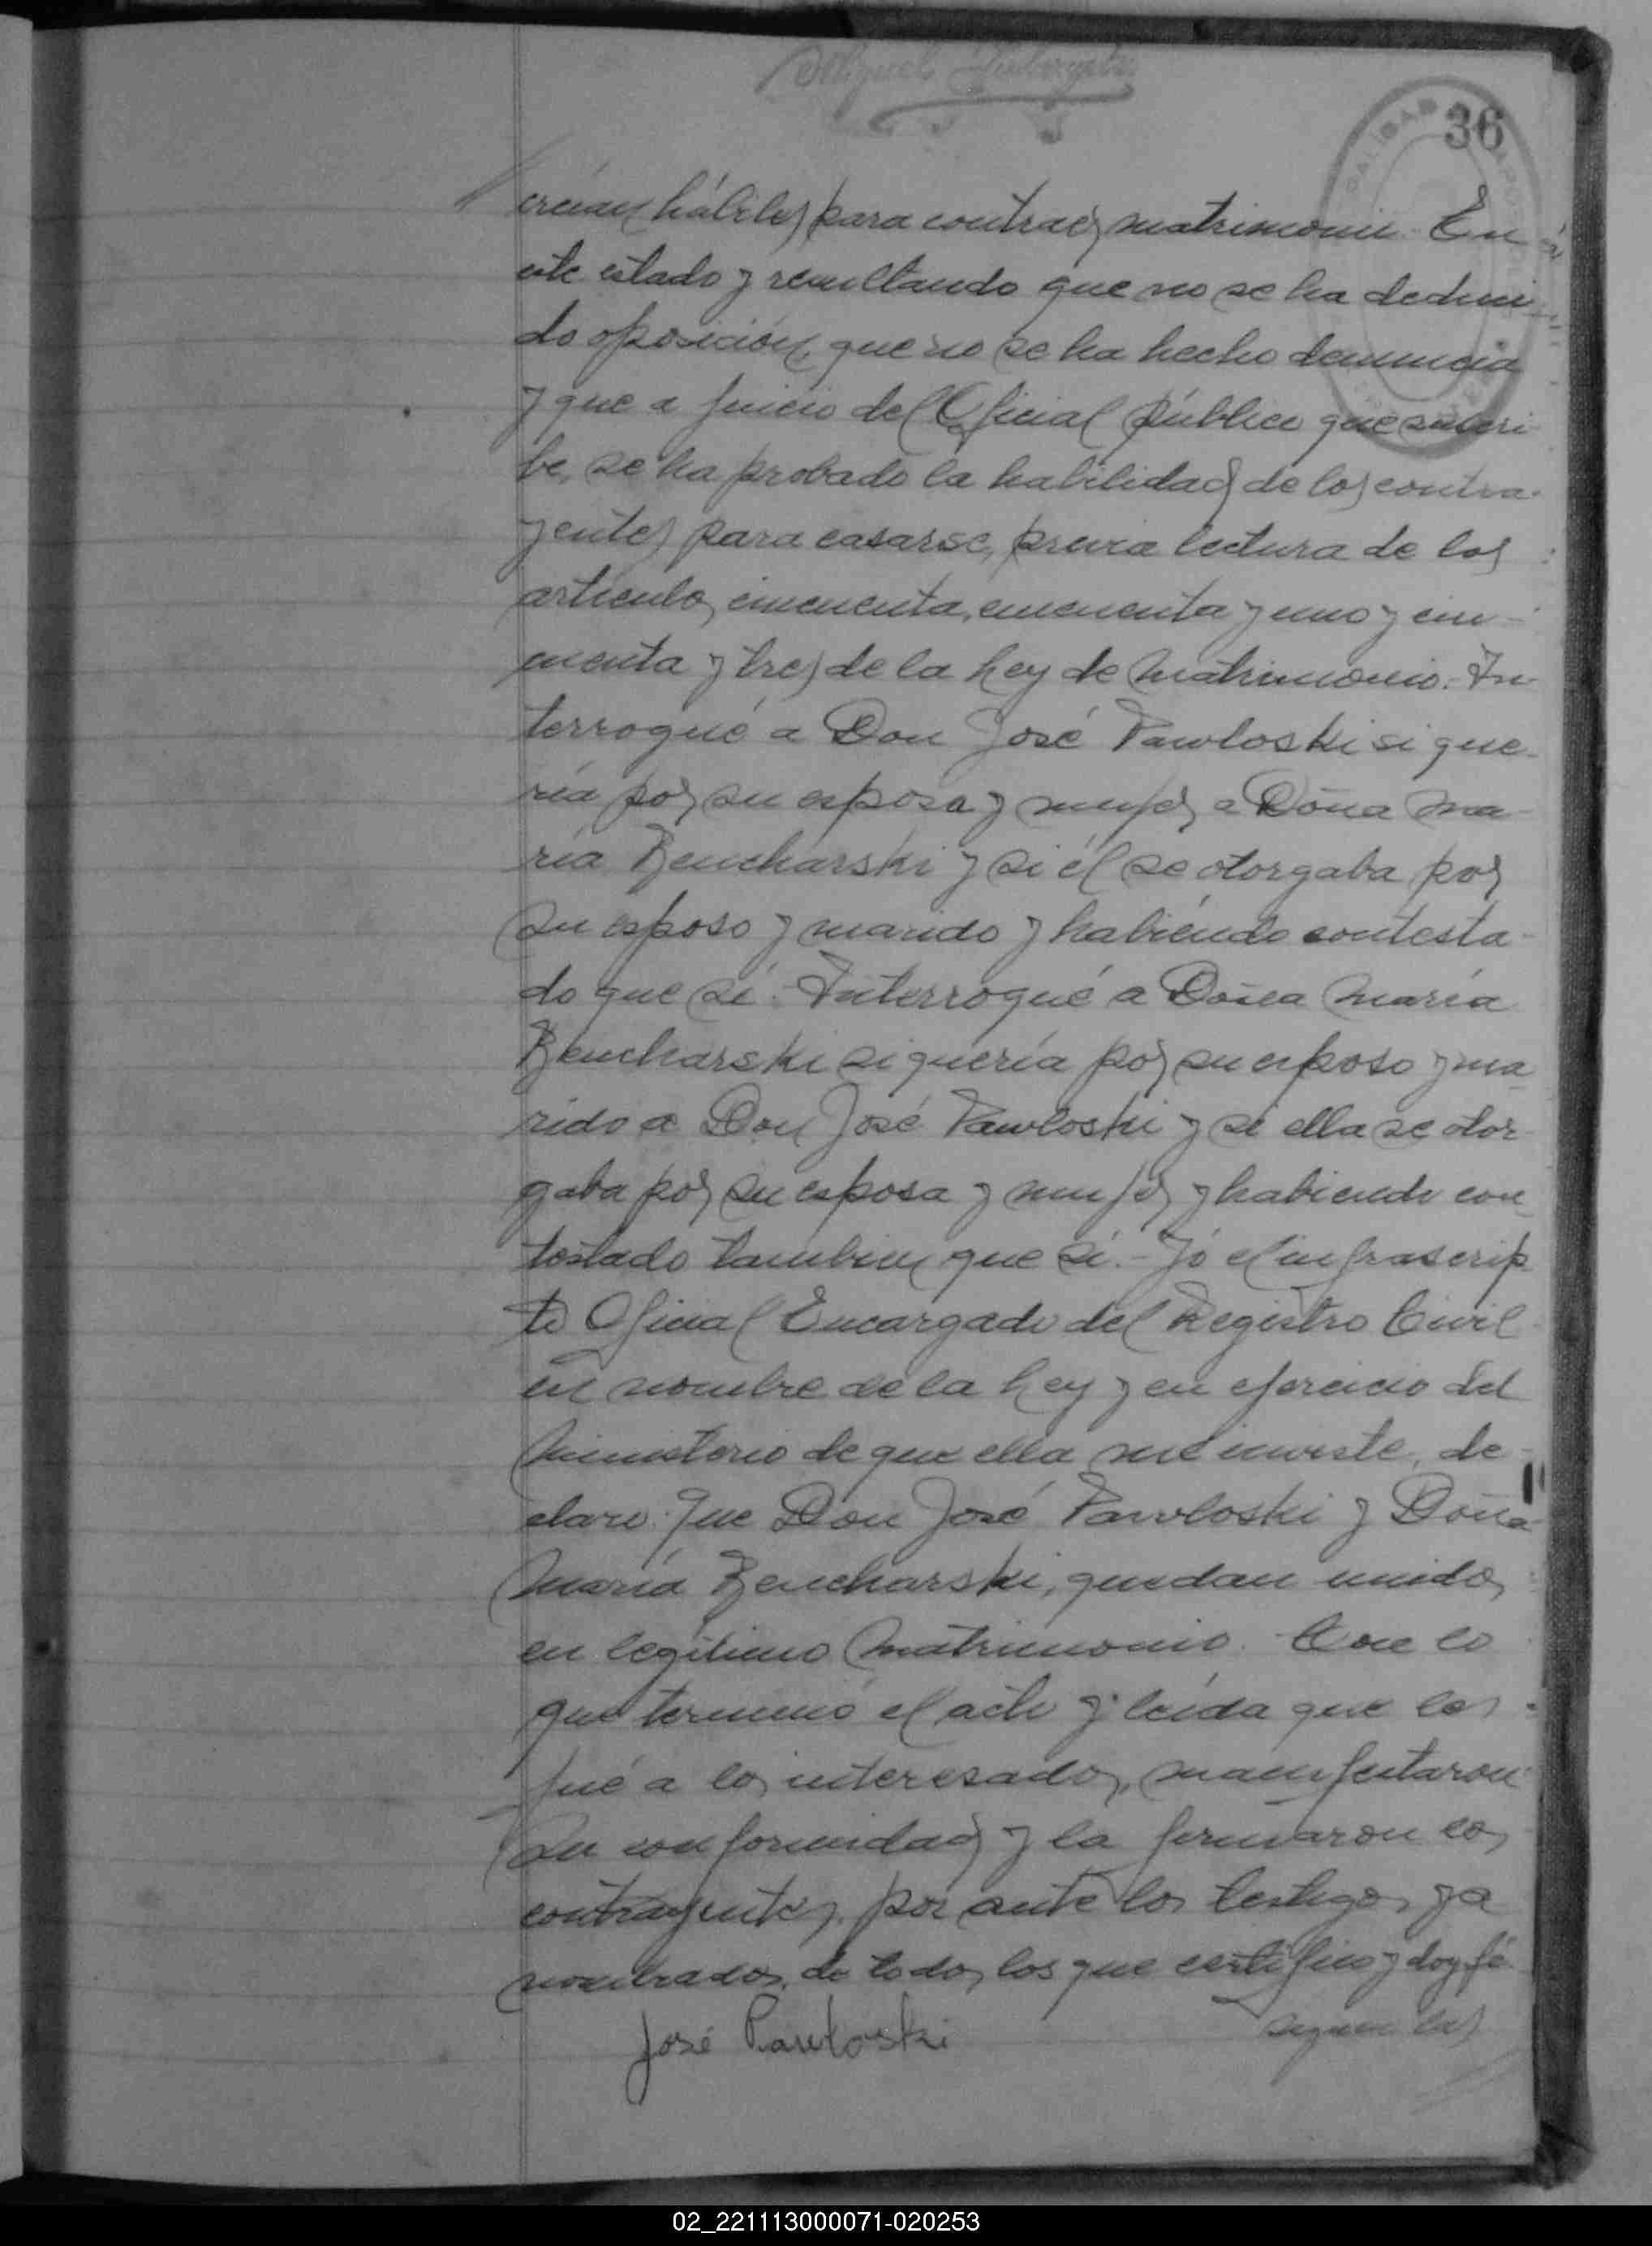 36
creían hábiles para contraer matrimonio. En
este estado y resultando que no se ha deduci-
do oposición, que no se ha hecho denuncia
y que a juicio del Oficial público que suscri
be, se ha probado la habilidad de los contra-
yentes para casarse, previa lectura de los
artículos cincuenta, cincuenta y uno y cin-
cuenta y tres de la Ley de Matrimonio.- In-
terrogué a Don José Pawloski si que-
ría por su esposa y mujer a Doña Ma-
ría Bencharski y si él se otorgaba por
su esposo y marido y habiendo contesta-
do que sí.- Interrogué a Doña María
Bencharski si quería por su esposo y ma
rido a Don José Pawloski y si ella se otor
gaba por su esposa y mujer y habiendo con
testado tambien que sí.- Yó el infrascrip
to Oficial Encargado del Registro Civil
en nombre de la Ley y en ejercicio del
Ministerio de que ella me inviste, de-
claro: Que Don José Pawloski y Doña
María Bencharski, quedan unidos
en legítimo Matrimonio. Con lo
que terminó el acto y leída que les
fué a los interesados, manifestaron
su conformidad y la firmaron los
contrayentes, por ante los testigos ya
nombrados, de todos los que certifico y doy fé.
siguen las
José Pawloski
02_221113000071-020253